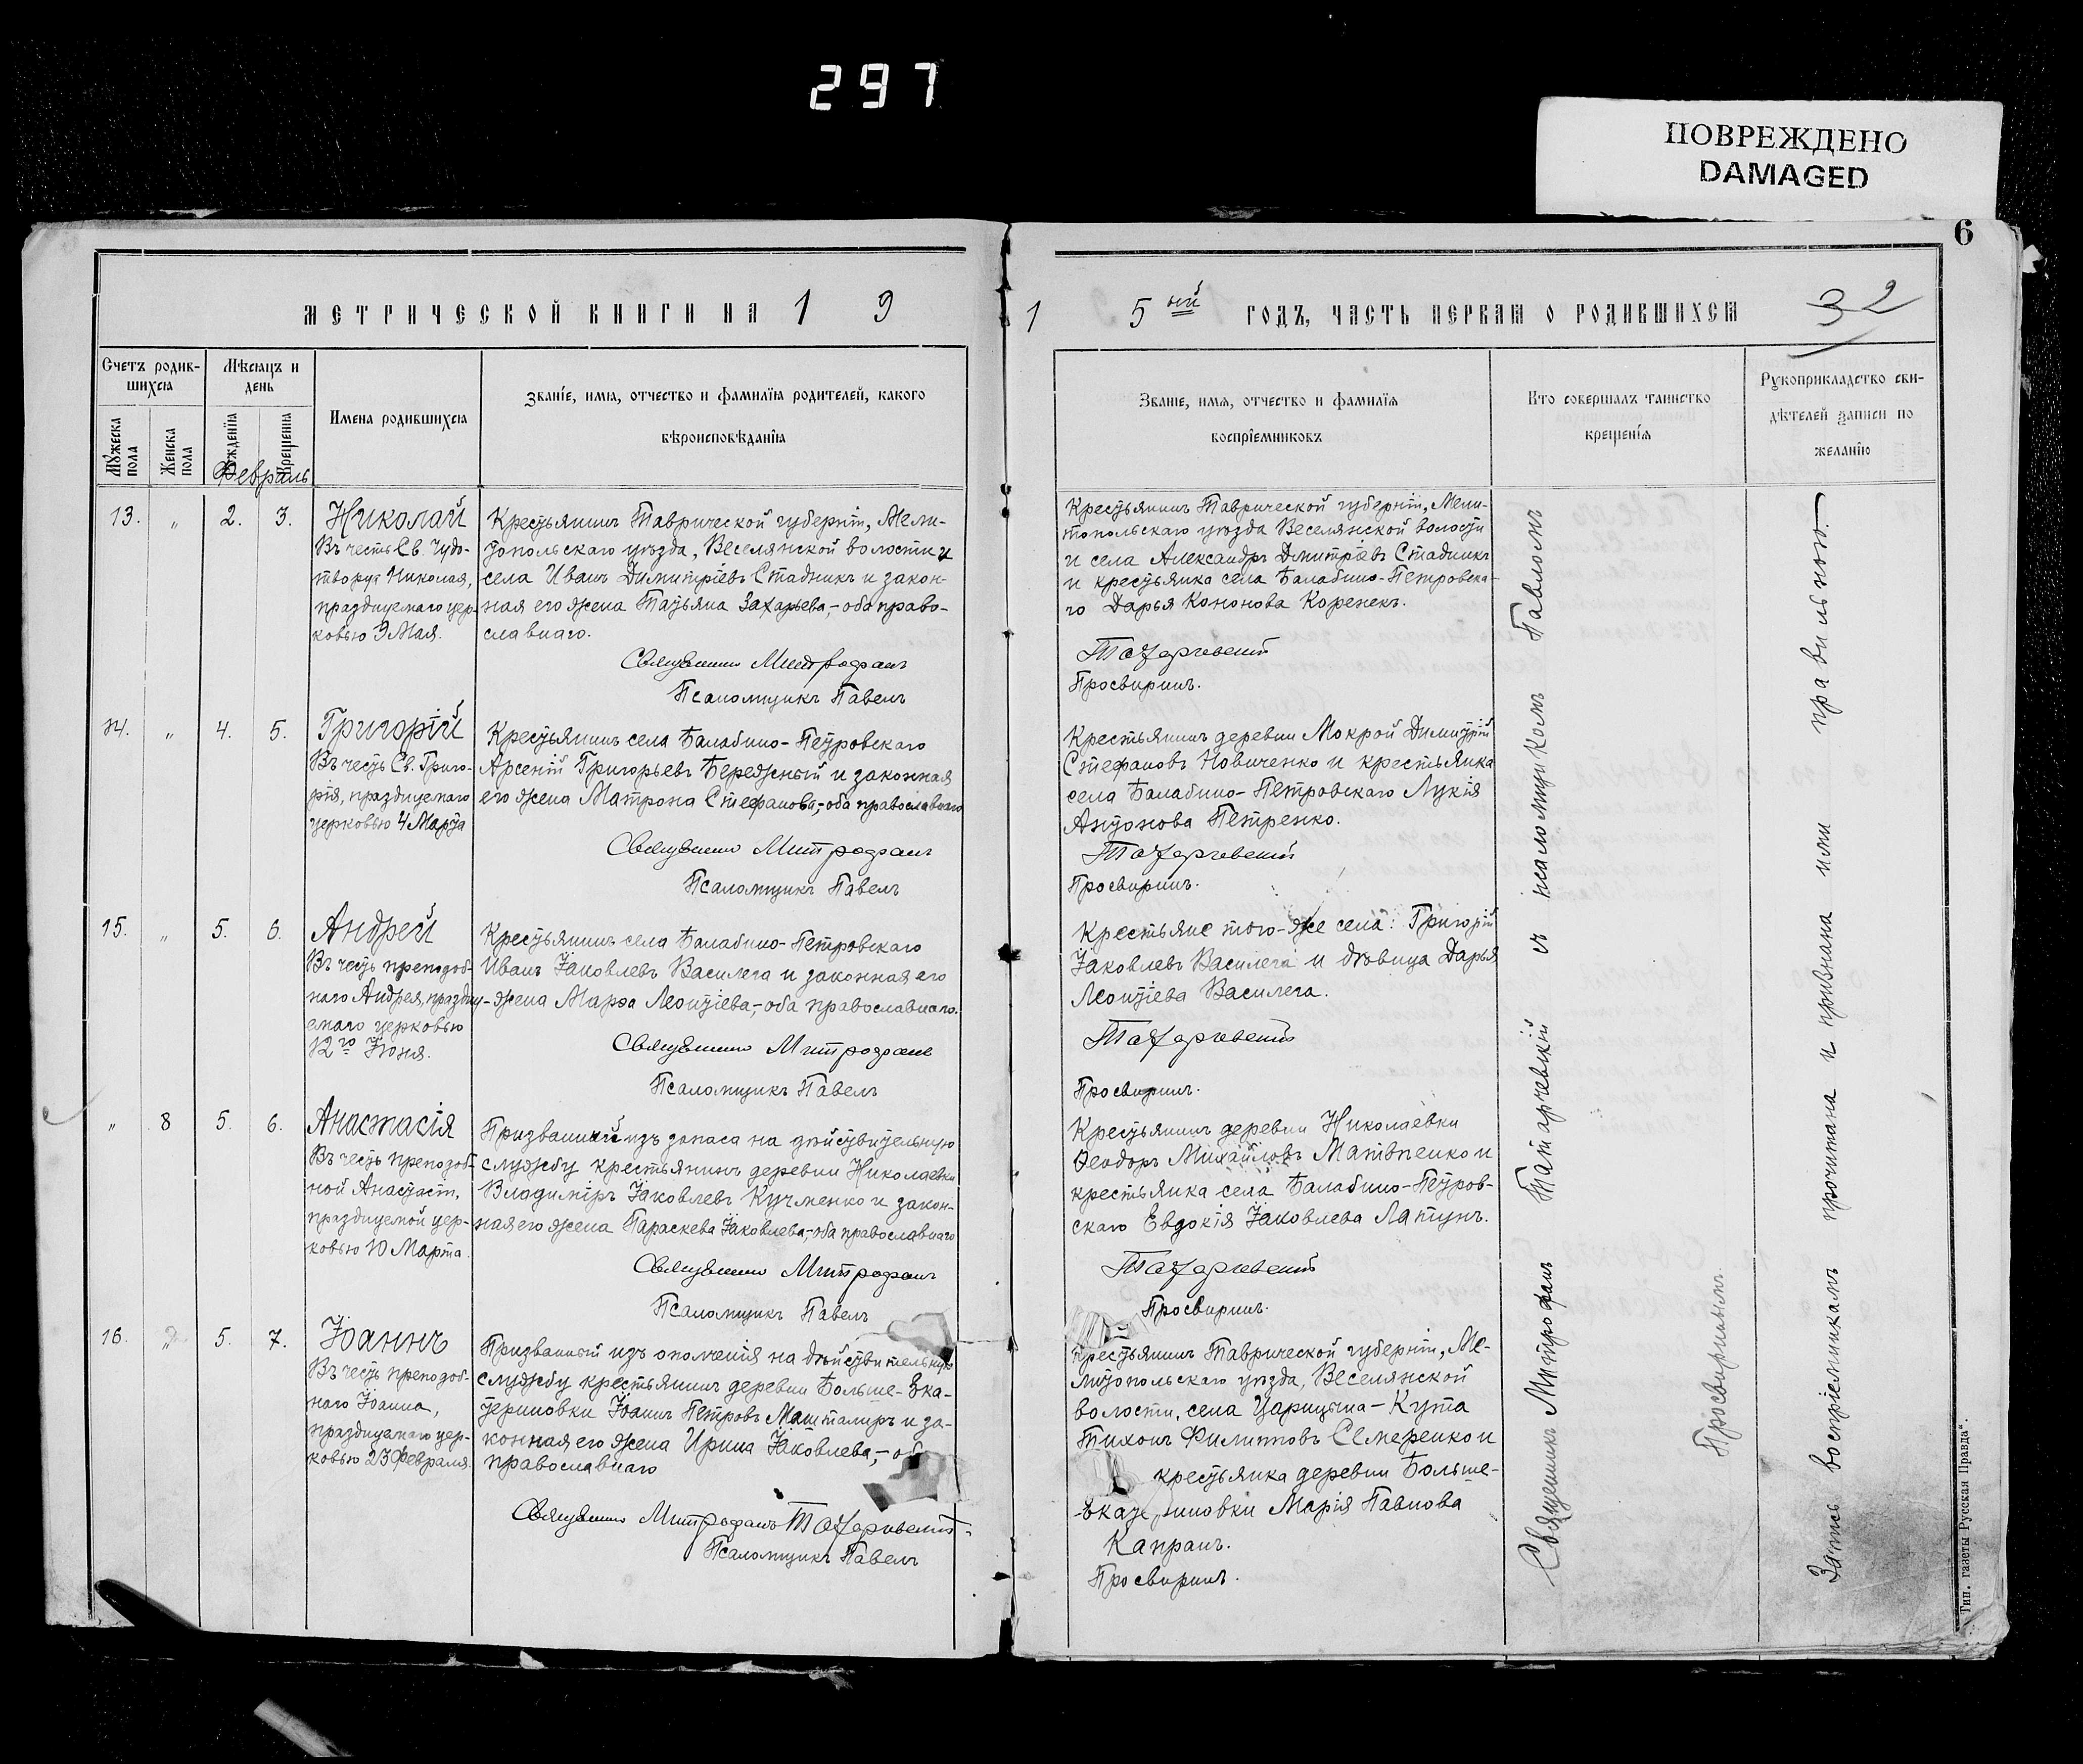 297
ПОВРЕЖДЕНО
DAMAGED
6
МЕТРИЧЕСКОЙ КНИГИ НА 1 9
1 5 ый ГОДЪ, ЧАСТЬ ПЕРВАЯ О РОДИВШИХСЯ
32
Счетъ родив-
шихся
Мужеска
пола
Женска
пола
Мѣсяцъ и
день
рожденія
крещенія
Февраль
Имена родившихся
Званіе, имя, отчество и фамилія родителей, какого
вѣроисповѣданія
Званіе, имя, отчество и фамилія
воспріемниковъ
Кто совершалъ таинство
крещенія
Рукоприкладство сви-
дѣтелей записи по
желанію
13. „ 2. 3.
Николай
Въ честь Св. Чудо-
творца Николая,
празднуемаго цер-
ковью 9 Мая.
Крестьянинъ Таврической губерніи, Мели-
топольскаго уѣзда, Веселянской волости и
села Иванъ Димитріевъ Стадникъ и закон-
ная его жена Татьяна Захарьева,- оба право-
славнаго.
Священникъ Митрофанъ
Псаломщикъ Павелъ
Крестьянинъ Таврической губерніи, Мели-
топольскаго уѣзда Веселянской волости
и села Александръ Дмитріевъ Стадникъ
и крестьянка села Балабино-Петровска-
го Дарья Кононова Коренекъ.
Татарчевскій
Просвиринъ.
14. „ 4. 5.
Григорій
Въ честь Св. Григо-
рія, празднуемаго
церковью 4 Марта
Крестьянинъ села Балабино-Петровскаго
Арсеній Григорьевъ Бережный и законная
его жена Матрона Стефанова,- оба православнаго
Священникъ Митрофанъ
Псаломщикъ Павелъ
Крестьянинъ деревни Мокрой Димитрій
Стефановъ Новиченко и крестьянка
села Балабино-Петровскаго Лукія
Антонова Петренко.
Татарчевскій
Просвиринъ.
15. „ 5. 6.
Андрей
Въ честь преподоб-
наго Андрея, праздну-
емаго церковью
12го Іюня.
Крестьянинъ села Балабино-Петровскаго
Иванъ Іаковлевъ Василега и законная его
жена Марѳа Леонтіева,- оба православнаго.
Священникъ Митрофанъ
Псаломщикъ Павелъ
Крестьяне того-же села: Григорій
Іаковлевъ Василега и дѣвица Дарья
Леонтіева Василега.
Татарчевскій
Просвиринъ.
„ 8 5. 6.
Анастасія
Въ честь преподоб-
ной Анастасіи,
празднуемой цер-
ковью 10 Марта.
Призванный изъ запаса на дѣйствительную
службу крестьянинъ деревни Николаевки
Владиміръ Іаковлевъ Кучменко и закон-
ная его жена Параскева Іаковлева,- оба православнаго
Священникъ Митрофанъ
Псаломщикъ Павелъ
Крестьянинъ деревни Николаевки
Ѳеодоръ Михайловъ Матвѣенко и
крестьянка села Балабино-Петров-
скаго Евдокія Іаковлева Лапунъ.
Татарчевскій
Просвиринъ.
16. „ 5. 7.
Іоаннъ
Въ честь преподоб-
наго Іоанна,
празднуемаго цер-
ковью 23 Февраля.
Призванный изъ ополченія на дѣйствительную
службу крестьянинъ деревни Больше-Ека-
териновки Іоаннъ Петровъ Машталиръ и за-
конная его жена Ирина Іаковлева,- оба
православнаго
Священникъ Митрофанъ Татарчевскій.
Псаломщикъ Павелъ
Крестьянинъ Таврической губерніи, Ме-
литопольскаго уѣзда, Веселянской
волости, села Царицына-Кута
Тихонъ Филипповъ Семеренко и
крестьянка деревни Больше-
Екатериновки Марія Павлова
Капранъ.
Просвиринъ.
Священникъ Митрофанъ Татарчевскій съ псаломщикомъ Павломъ
Просвиринымъ.
Запись воспріемникамъ прочитана и признана ими правильною.
Тип. газеты Русская Правда".